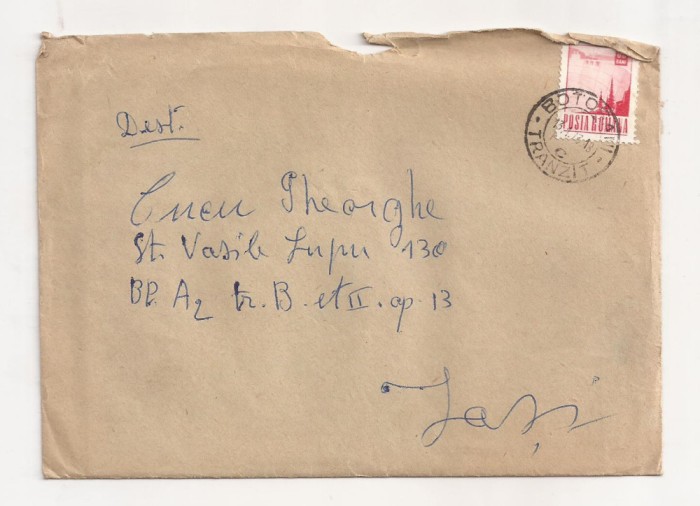 Dest.
Cucu Gheorghe
St. Vasile Lupu 130
Bl. A2 tr. B. et II. ap. 13
Iași
POSTA ROMANA
BOTOȘANI
TRANZIT